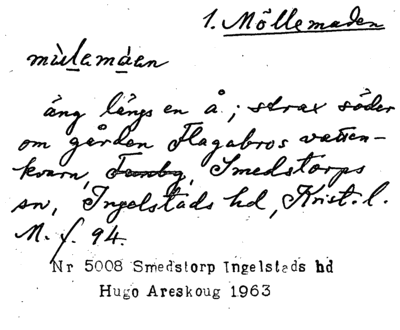 1. Möllemaden
mùlemáen
äng längs en å; strax söder
om gården Flagabros vatten-
kvarn, Tranby, Smedstorps
sn, Ingelstads hd, Krist. l.
M. f. 94.
Nr 5008 Smedstorp Ingelstads hd
Hugo Areskoug 1963